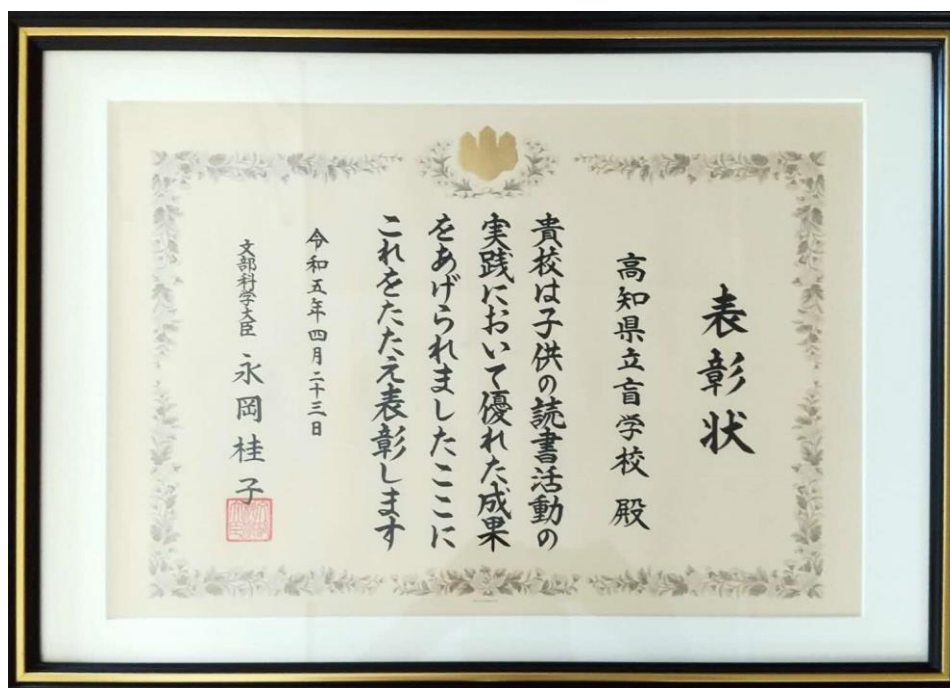 表彰状
高知県立盲学校 殿
貴校は子供の読書活動の
実践において優れた成果
をあげられましたここに
これをたたえ表彰します
令和五年四月二十三日
文部科学大臣 永岡桂子